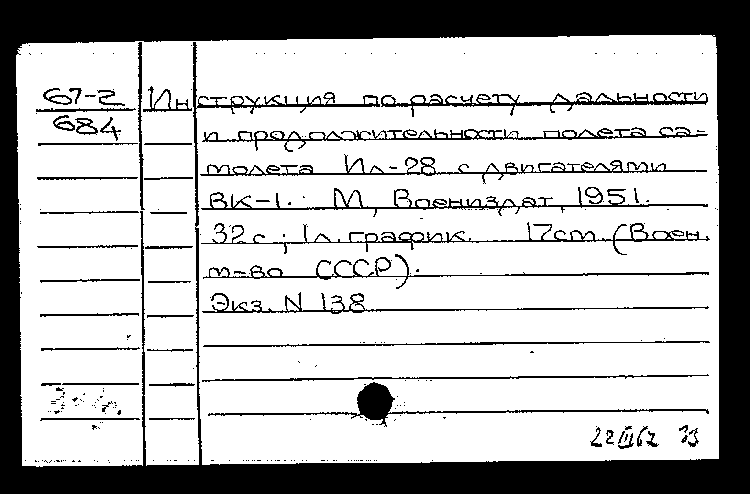 67-2 Инструкция по расчету дальности
684 и продолжительности полета са-
молета Ил-28 с двигателями
ВК-1. М, Воениздат, 1951.
32с; 1л. график. 17cm. (Воен.
м-во СССР).
Экз. N 138
22 III 67